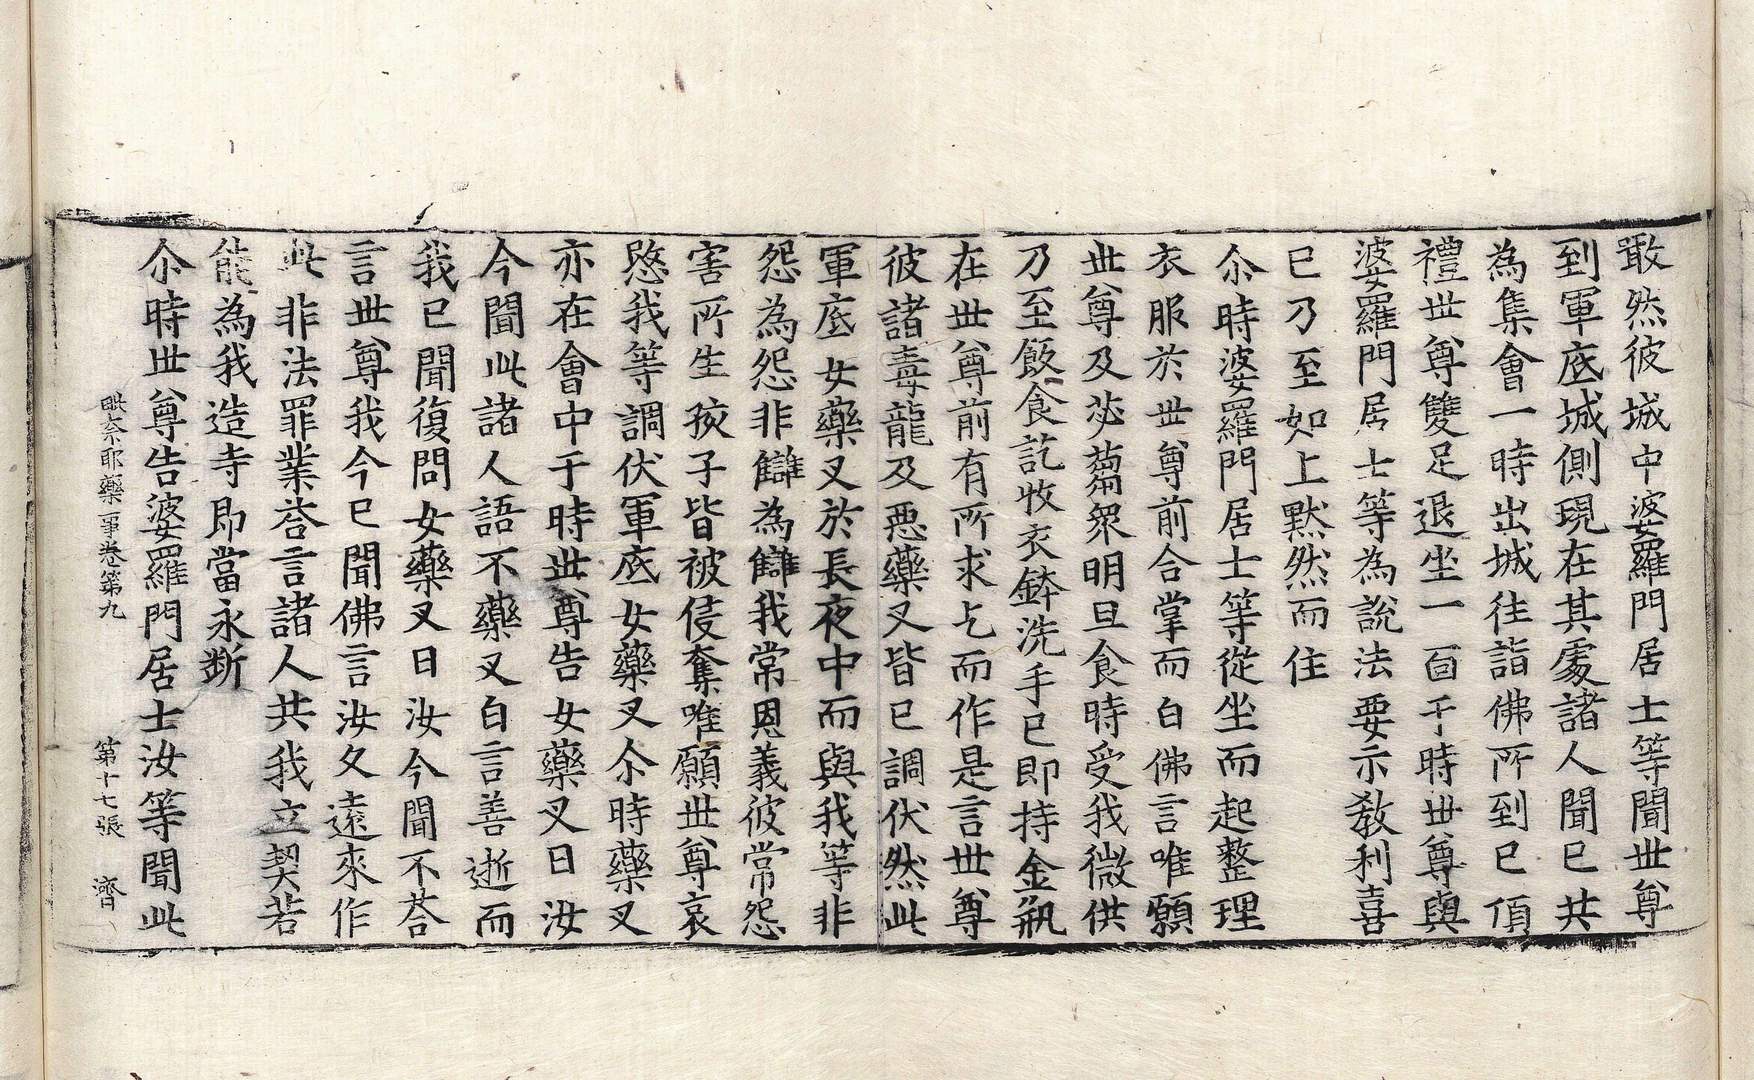 敢然彼城中婆羅門居士等聞世尊
到軍底城側現在其處諸人聞已共
為集會一時出城往詣佛所到已頂
禮世尊雙足退坐一面于時世尊與
婆羅門居士等為說法要示教利喜
已乃至如上默然而住
尒時婆羅門居士等從坐而起整理
衣服於世尊前合掌而白佛言唯願
世尊及苾芻眾明旦食時受我微供
乃至飯食訖收衣鉢洗手已即持金瓶
在世尊前有所求乞而作是言世尊
彼諸毒龍及惡藥叉皆已調伏然此
軍底女藥叉於長夜中而與我等非
怨為怨非讎為讎我常恩義彼常怨
害所生孩子皆被侵奪唯願世尊哀
愍我等調伏軍底女藥叉尒時藥叉
亦在會中于時世尊告女藥叉曰汝
今聞此諸人語不藥叉白言善逝而
我已聞復問女藥叉曰汝今聞不荅
言世尊我今已聞佛言汝久遠來作
此非法罪業荅言諸人共我立契若
能為我造寺即當永斷
尒時世尊告婆羅門居士汝等聞此
毗奈耶藥事卷第九 第十七張 濟